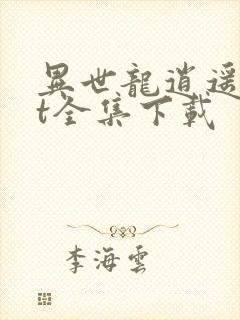 異世龍逍遥
t全集下載
李海雲